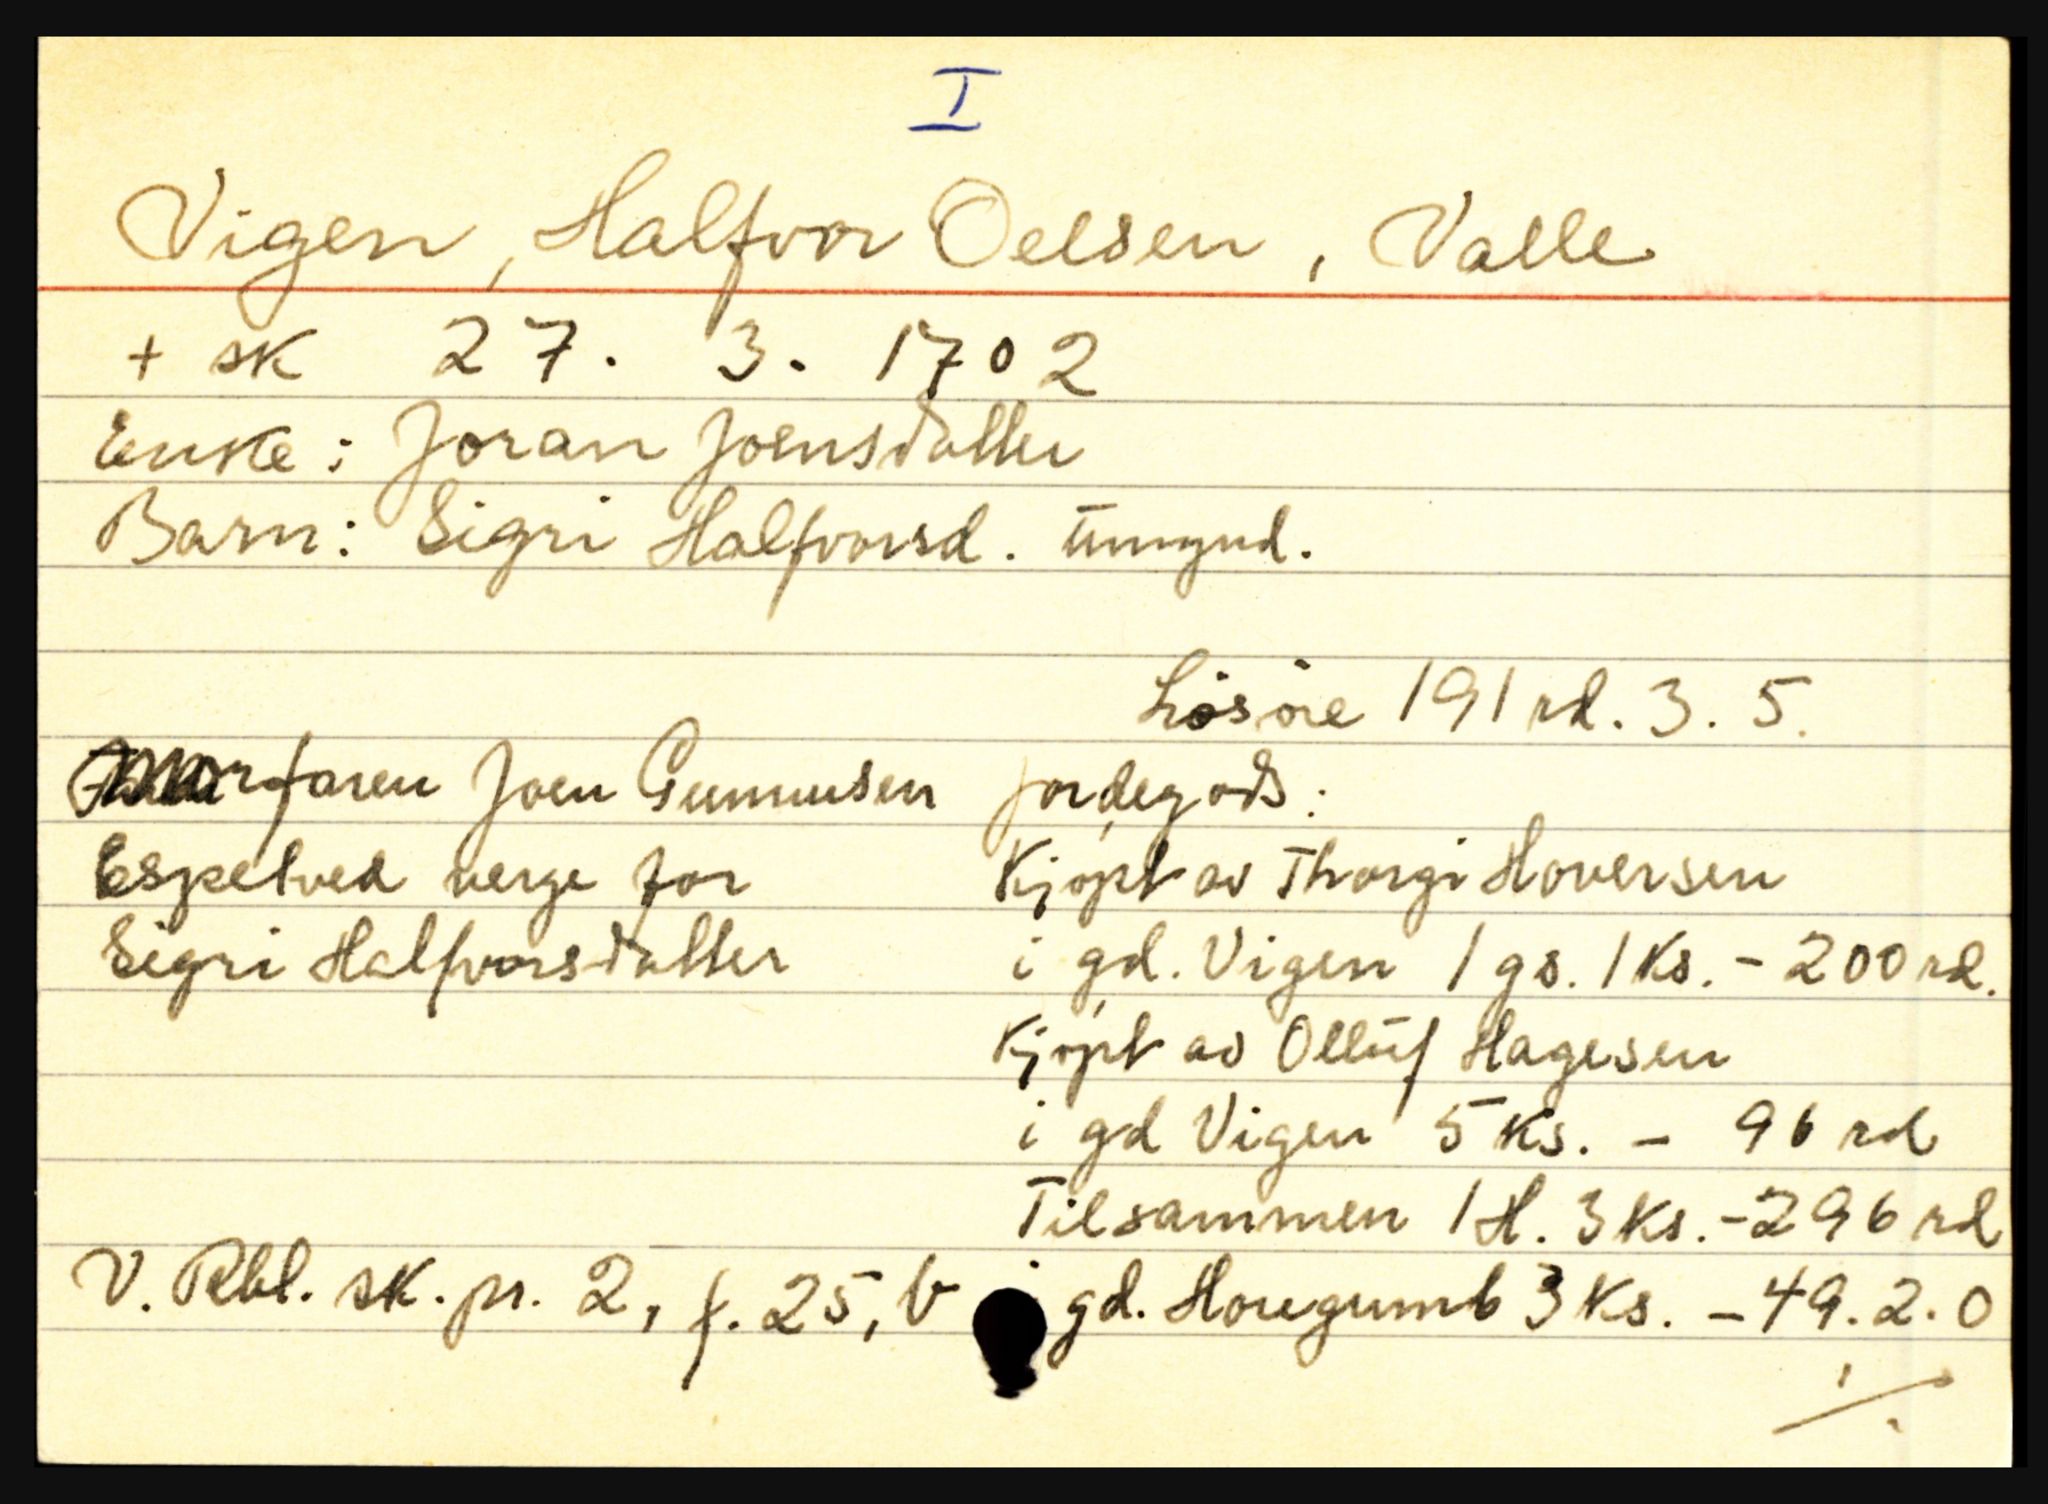 I
Vigen, Halfvor Oelsen, Valle
+ sk 27. 3. 1702
Enke: Joran Joensdatter
Barn: Sigri Halfvorsd. umynd.
Lösöre 191 rd. 3. 5.
morfaren Joen Gunnusen
Espetved verge for
Sigri Halfvorsdatter
Jordegods:
Kjøpt av Thorgi Hoversen
i gd. Vigen 1 gs. 1 Ks. - 200 rd.
Kjøpt av Olluf Hagesen
i gd Vigen 5 Ks. - 96 rd
Tilsammen 1 H. 3 Ks. - 296 rd
i gd. Horegumb 3 Ks. - 49. 2. 0
V. Rbl. sk. pr. 2, f. 25, b